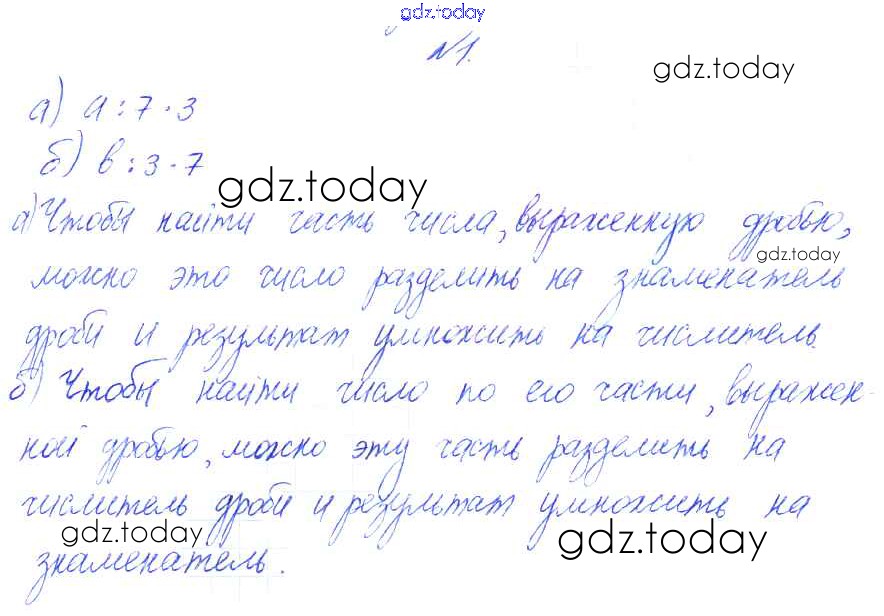 gdz.today
№1.
gdz.today
а) a : 7 · 3
б) b : 3 · 7
gdz.today
а) Чтобы найти часть числа, выраженную дробью,
gdz.today
можно это число разделить на знаменатель
дроби и результат умножить на числитель.
б) Чтобы найти число по его части, выражен-
ной дробью, можно эту часть разделить на
числитель дроби и результат умножить на
gdz.today
gdz.today
знаменатель.